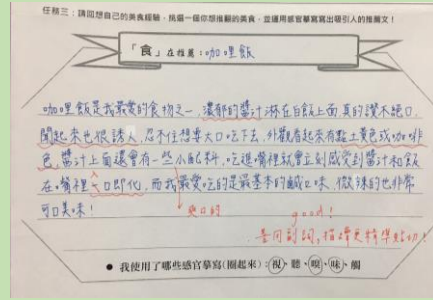 任務三：請回想自己的美食經驗，挑選一個你想推薦的美食，並運用感官摹寫寫出吸引人的推薦文！
「食」在推薦：咖哩飯
咖哩飯是我最愛的食物之一，濃郁的醬汁淋在白飯上面真的讚不絕口，
聞起來也很誘人，忍不住想要大口吃下去，外觀看起來有點土黃色或咖啡
色，醬汁上面還會有一些小配料，吃進嘴裡就會立刻感受到醬汁和飯
在嘴裡入口即化，而我最愛吃的是最基本的鹹口味，微辣的也非常
可口美味！
爽口的
good!
善用副詞，描繪更精準貼切！
● 我使用了哪些感官摹寫(圈起來)：視、聽、嗅、味、觸